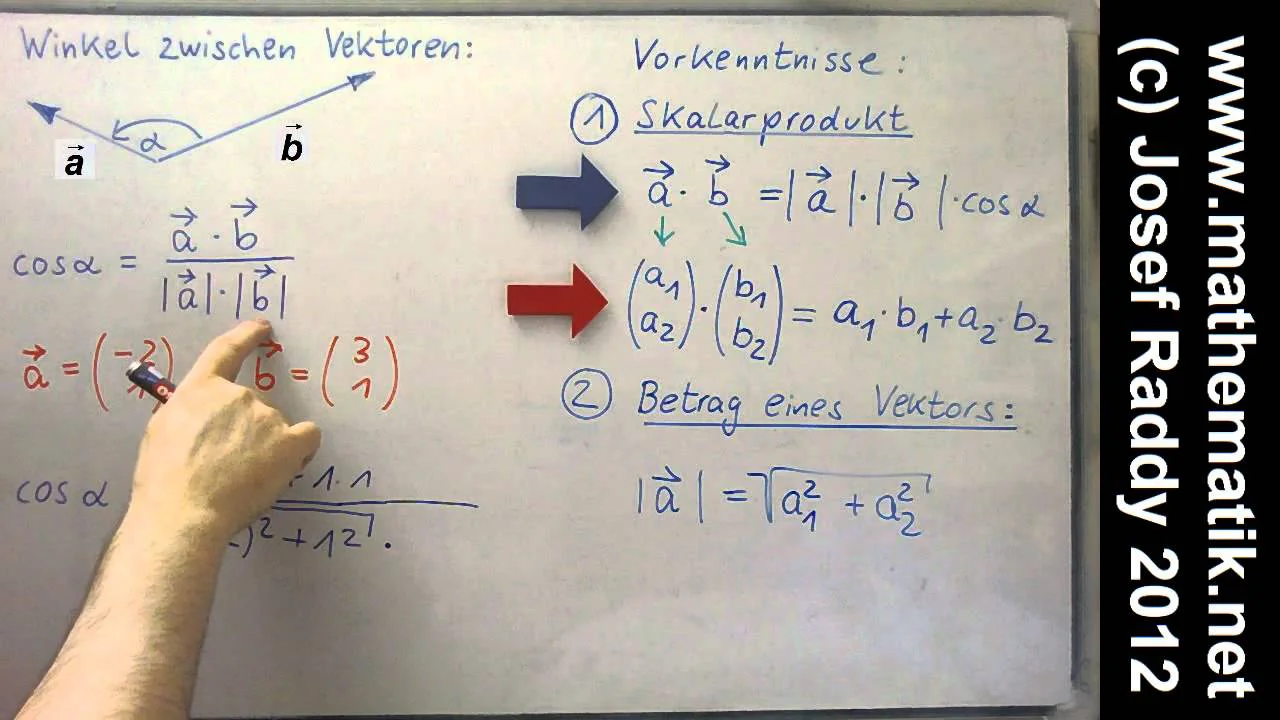 Winkel zwischen Vektoren:
α
a⃗
b⃗
cos α = (a⃗ · b⃗) / (|a⃗| · |b⃗|)
a⃗ = (-2
b⃗ = (3
1)
cos α
+ 1 · 1
)² + 1² ·
Vorkenntnisse:
① Skalarprodukt
a⃗ · b⃗ = |a⃗| · |b⃗| · cos α
(a₁ a₂) · (b₁ b₂) = a₁ · b₁ + a₂ · b₂
② Betrag eines Vektors:
|a⃗| = √(a₁² + a₂²)
www.mathematik.net
(c) Josef Raddy 2012